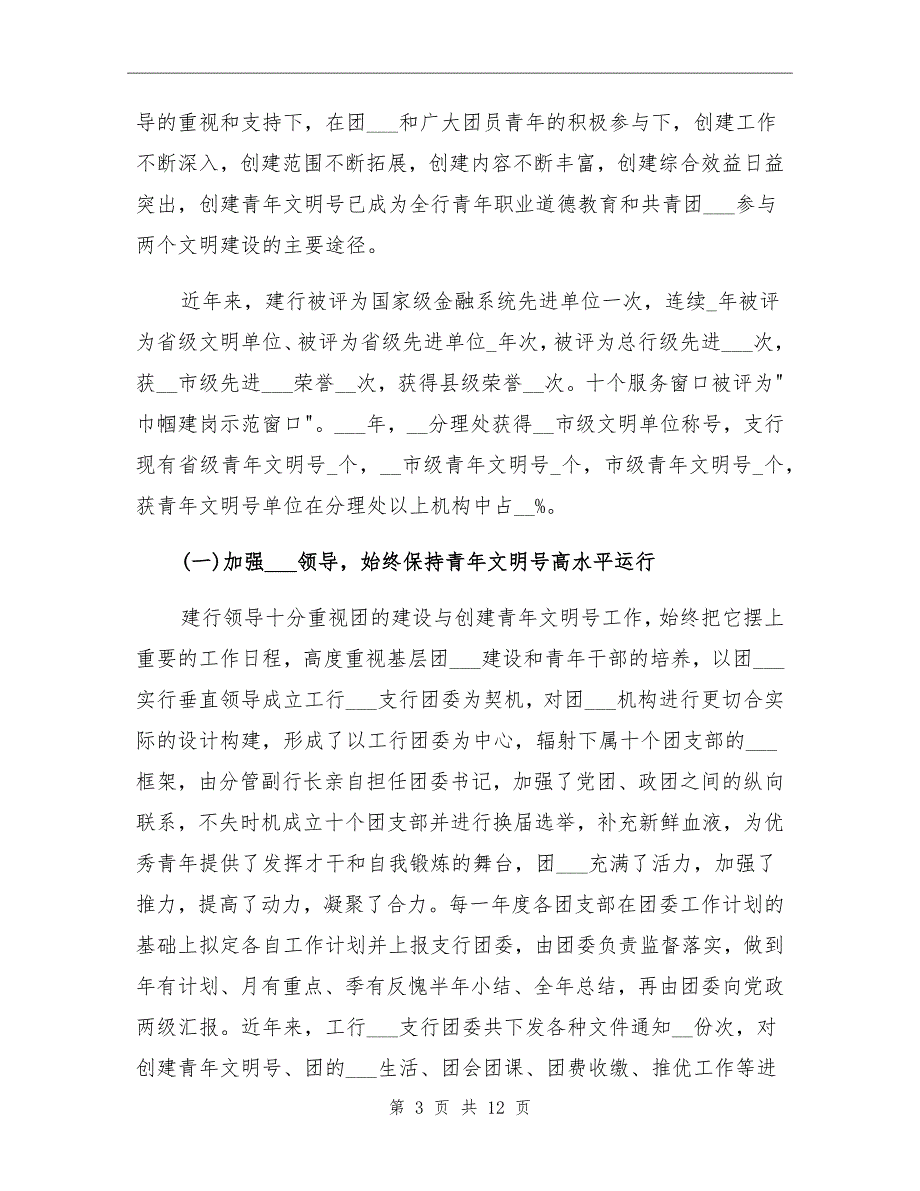 导的重视和支持下，在团___和广大团员青年的积极参与下，创建工作
不断深入，创建范围不断拓展，创建内容不断丰富，创建综合效益日益
突出，创建青年文明号已成为全行青年职业道德教育和共青团___参与
两个文明建设的主要途径。
近年来，建行被评为国家级金融系统先进单位一次，连续_年被评
为省级文明单位、被评为省级先进单位_年次，被评为总行级先进___次，
获__市级先进___荣誉__次，获得县级荣誉__次。十个服务窗口被评为"
巾帼建岗示范窗口"。___年，__分理处获得__市级文明单位称号，支行
现有省级青年文明号_个，__市级青年文明号_个，市级青年文明号_个，
获青年文明号单位在分理处以上机构中占__%。
(一)加强___领导，始终保持青年文明号高水平运行
建行领导十分重视团的建设与创建青年文明号工作，始终把它摆上
重要的工作日程，高度重视基层团___建设和青年干部的培养，以团___
实行垂直领导成立工行___支行团委为契机，对团___机构进行更切合实
际的设计构建，形成了以工行团委为中心，辐射下属十个团支部的___
框架，由分管副行长亲自担任团委书记，加强了党团、政团之间的纵向
联系，不失时机成立十个团支部并进行换届选举，补充新鲜血液，为优
秀青年提供了发挥才干和自我锻炼的舞台，团___充满了活力，加强了
推力，提高了动力，凝聚了合力。每一年度各团支部在团委工作计划的
基础上拟定各自工作计划并上报支行团委，由团委负责监督落实，做到
年有计划、月有重点、季有反愧半年小结、全年总结，再由团委向党政
两级汇报。近年来，工行___支行团委共下发各种文件通知__份次，对
创建青年文明号、团的___生活、团会团课、团费收缴、推优工作等进
第 3 页 共 12 页